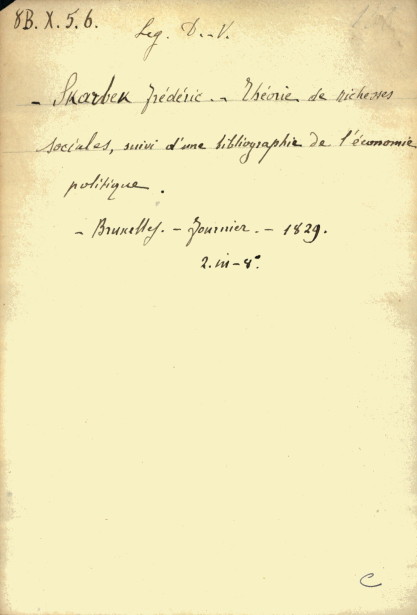 8B. X. 5. 6.
Leg. D.-V.
- Skarbek Frédéric. - Théorie de richesses
sociales, suivi d'une bibliographie de l'économie
politique.
- Bruxelles. - Fournier. - 1829.
2. in-8°.
C